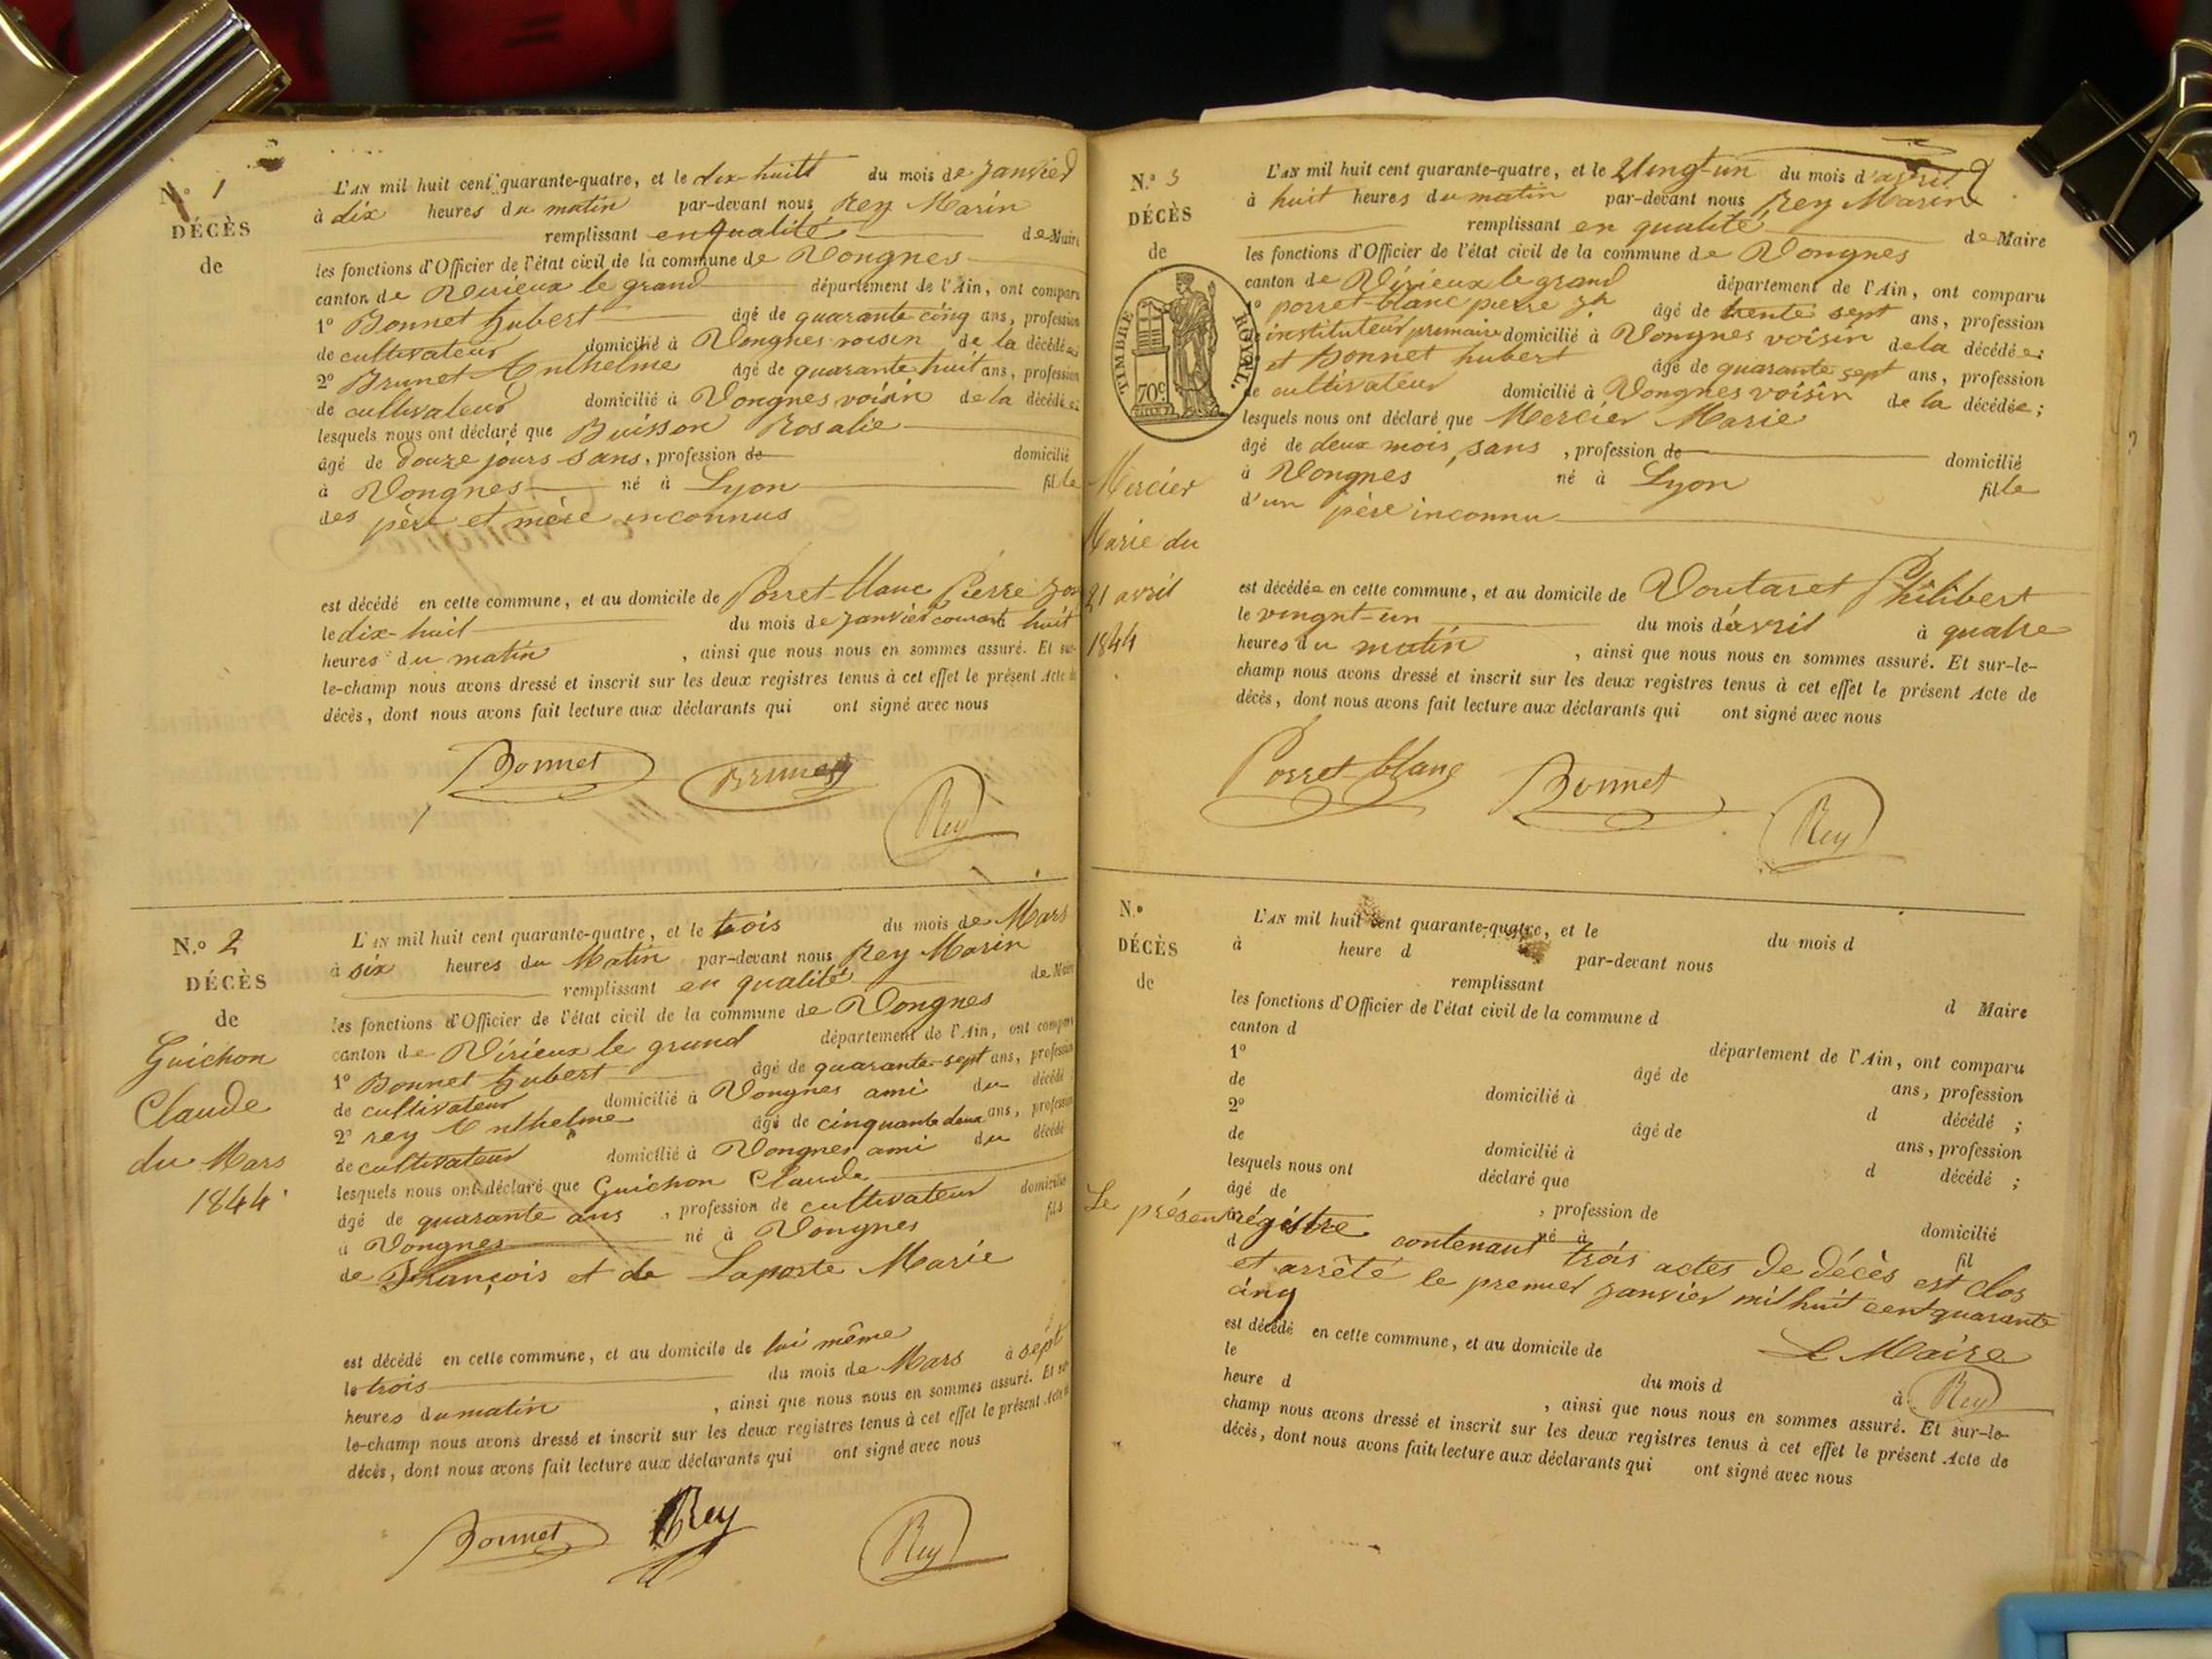 N.° 1
DÉCÈS
de
L'AN mil huit cent quarante-quatre, et le dix-huitt du mois de janvier
à dix heures du matin par-devant nous Rey Marin
remplissant en qualité de Maire
les fonctions d'Officier de l'état civil de la commune de Vongnes
canton de Virieux le grand département de l'Ain, ont comparu
1° Bonnet hubert âgé de quarante cinq ans, profession
de cultivateur domicilié à Vongnes voisin de la décédée;
2° Brunet Anthelme âgé de quarante huit ans, profession
de cultivateur domicilié à Vongnes voisin de la décédée;
lesquels nous ont déclaré que Buisson Rosalie
âgé de douze jours sans, profession de domicilié
à Vongnes né à Lyon fille
des père et mère inconnus
est décédé en cette commune, et au domicile de Porret-blanc Pierre
le dix-huit du mois de janvier courant huit
heures du matin, ainsi que nous nous en sommes assuré. Et sur-
le-champ nous avons dressé et inscrit sur les deux registres tenus à cet effet le présent Acte de
décès, dont nous avons fait lecture aux déclarants qui ont signé avec nous
Bonnet Brunet
Rey
N.° 2
DÉCÈS
de
Guichon
Claude
du Mars
1844
L'AN mil huit cent quarante-quatre, et le trois du mois de Mars
à six heures du Matin par-devant nous Rey Marin
remplissant en qualité de Maire
les fonctions d'Officier de l'état civil de la commune de Vongnes
canton de Virieux le grand département de l'Ain, ont comparu
1° Bonnet hubert âgé de quarante-sept ans, profession
de cultivateur domicilié à Vongnes ami du décédé
2° rey Anthelme âgé de cinquante deux ans, profession
de cultivateur domicilié à Vongnes ami du décédé
lesquels nous ont déclaré que Guichon Claude
âgé de quarante ans, profession de cultivateur domicilié
à Vongnes né à Vongnes fils
de François et de Laporte Marie
est décédé en cette commune, et au domicile de lui même
le trois du mois de Mars à sept
heures du matin, ainsi que nous nous en sommes assuré. Et sur-
le-champ nous avons dressé et inscrit sur les deux registres tenus à cet effet le présent Acte de
décès, dont nous avons fait lecture aux déclarants qui ont signé avec nous
Bonnet Rey Rey
N.° 3
DÉCÈS
de
TIMBRE ROYAL.
70c.
Mercier
Marie du
21 avril
1844
L'AN mil huit cent quarante-quatre, et le Vingt-un du mois d'avril
à huit heures du matin par-devant nous Rey Marin
remplissant en qualité de Maire
les fonctions d'Officier de l'état civil de la commune de Vongnes
canton de Virieux le grand département de l'Ain, ont comparu
1° porret-blanc pierre âgé de trente sept ans, profession
instituteur primaire domicilié à Vongnes voisin de la décédée;
et Bonnet hubert âgé de quarante sept ans, profession
de cultivateur domicilié à Vongnes voisin de la décédée;
lesquels nous ont déclaré que Mercier Marie
âgé de deux mois, sans, profession de domicilié
à Vongnes né à Lyon fille
d'un père inconnu
est décédée en cette commune, et au domicile de Voutaret Philibert
le vingt-un du mois d'avril à quatre
heures du matin, ainsi que nous nous en sommes assuré. Et sur-le-
champ nous avons dressé et inscrit sur les deux registres tenus à cet effet le présent Acte de
décès, dont nous avons fait lecture aux déclarants qui ont signé avec nous
Porret-blanc Bonnet
Rey
N.°
DÉCÈS
de
L'AN mil huit cent quarante-quatre, et le du mois d
à heure d par-devant nous
remplissant d Maire
les fonctions d'Officier de l'état civil de la commune d
canton d département de l'Ain, ont comparu
1° âgé de ans, profession
de domicilié à d décédé ;
2° âgé de ans, profession
de domicilié à d décédé ;
lesquels nous ont déclaré que
âgé de , profession de domicilié
à né à fil
d
Le présent régistre contenant trois actes de décès est clos
et arrêté le premier janvier mil huit cent quarante
cinq
est décédé en cette commune, et au domicile de
Le Maire
le du mois d à
Rey
heure d , ainsi que nous nous en sommes assuré. Et sur-le-
champ nous avons dressé et inscrit sur les deux registres tenus à cet effet le présent Acte de
décès, dont nous avons fait lecture aux déclarants qui ont signé avec nous